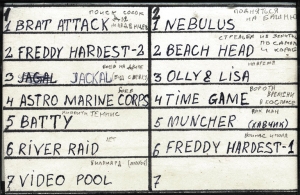 1 BRAT ATTACK ПОИСК СОСОК ДЛЯ
2 FREDDY HARDEST-2
3 JACKAL
4 ASTRO MARINE CORPS
5 BATTY
6 RIVER RAID
7 VIDEO POOL
1 NEBULUS ПОДНЯТЬСЯ НА БАШНЮ
2 BEACH HEAD
3 OLLY & LISA
4 TIME GAME ВОРОТА ВРЕМЕНИ
5 MUNCHER
6 FREDDY HARDEST-1
7